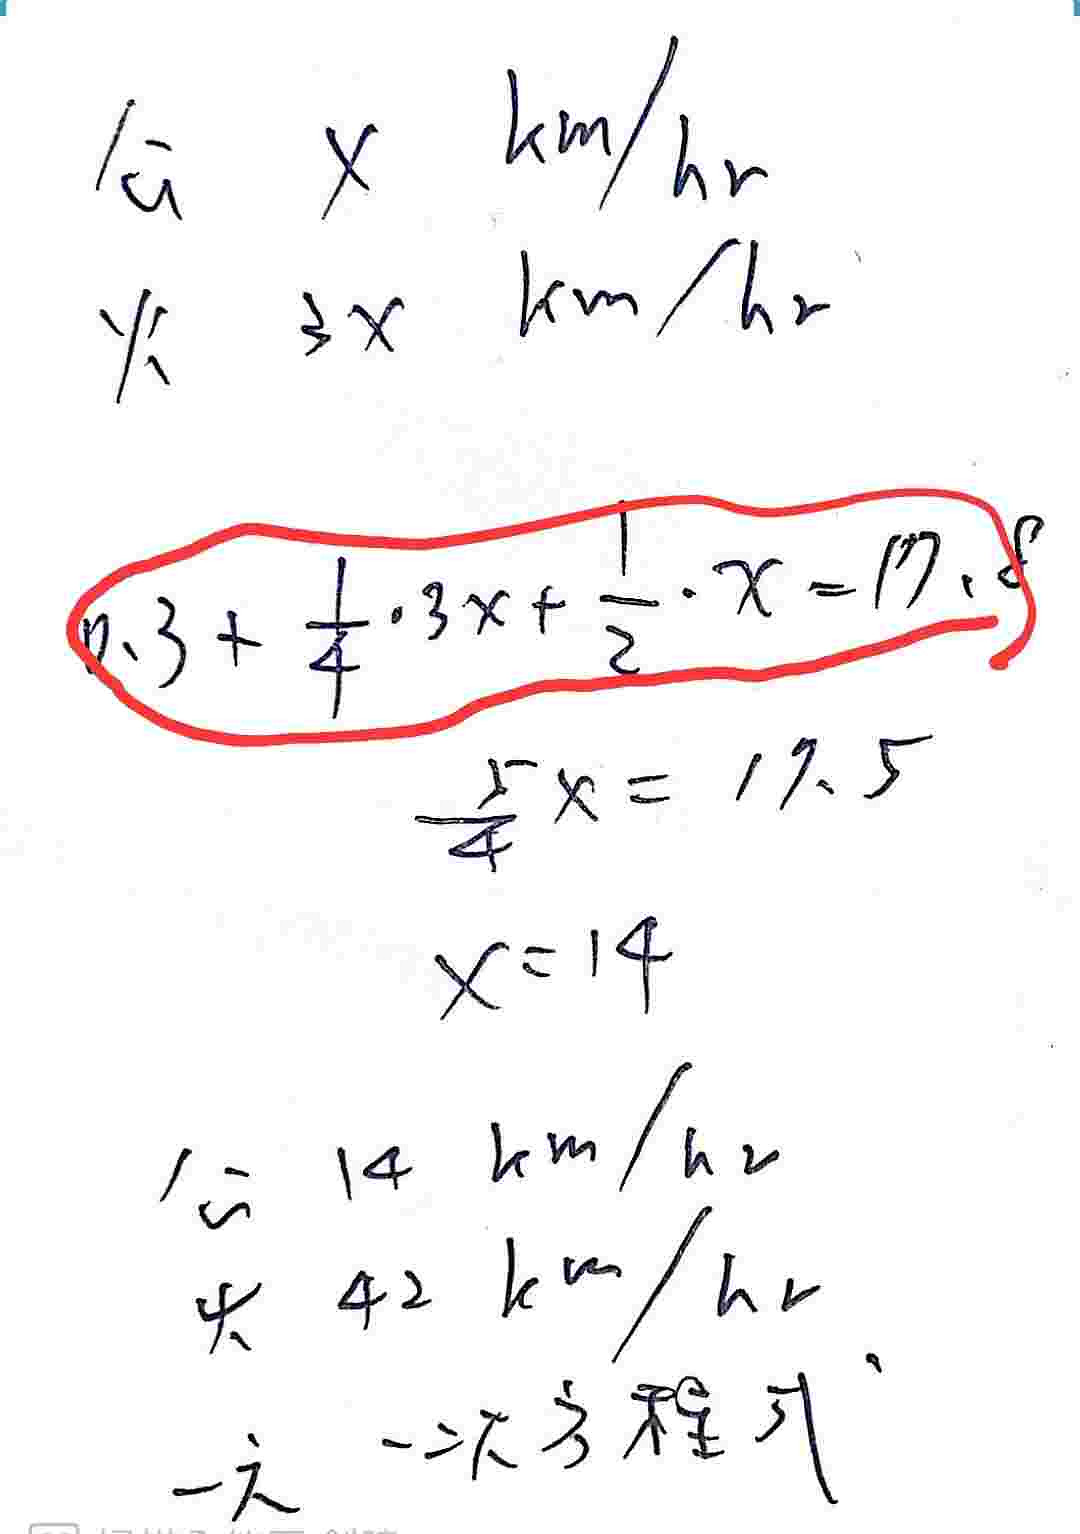 公 x km/hr
火 3x km/hr
0.3 + 1/4 · 3x + 1/2 · x = 17.8
5/4 x = 17.5
x = 14
公 14 km/hr
火 42 km/hr
一元一次方程式